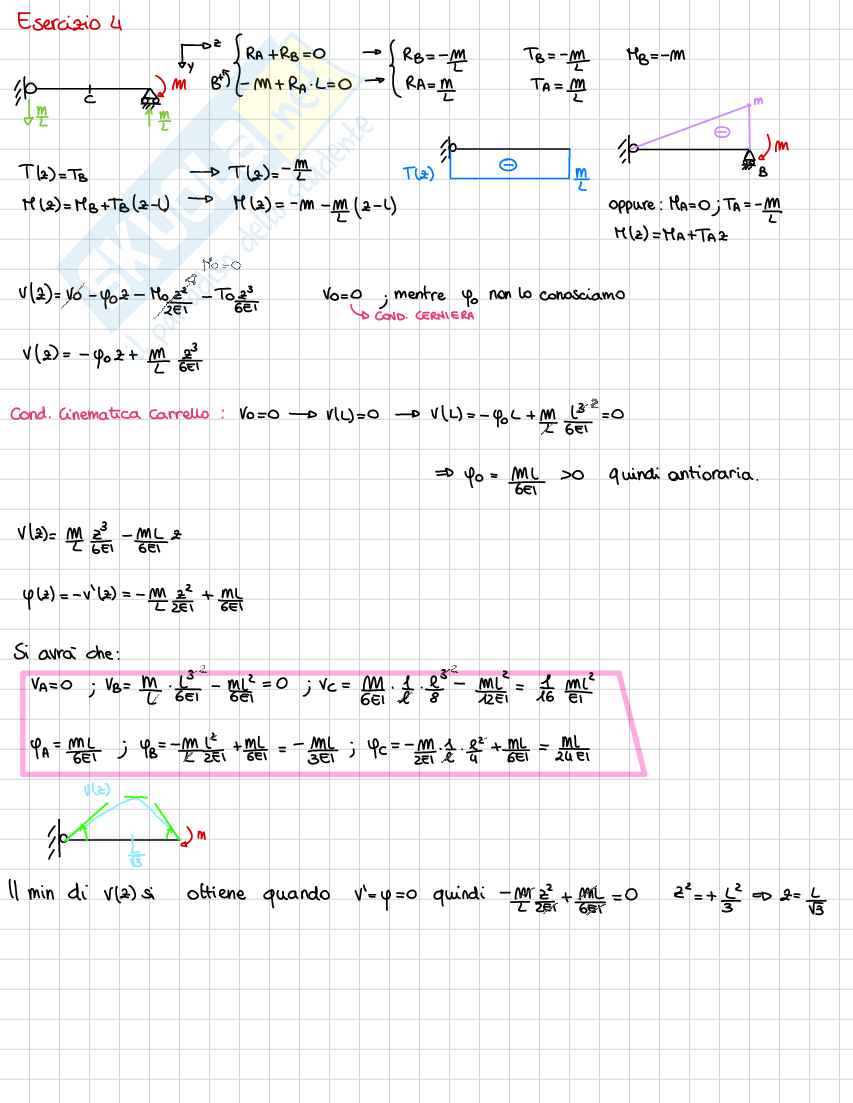 Esercizio 4
z
y
B
{ RA + RB = 0 → { RB = -m/L TB = -m/L MB = -m
{ -m + RA · L = 0 → { RA = m/L TA = m/L
m
C
m/L
m/L
T(z) = TB → T(z) = -m/L
M(z) = MB + TB(z-L) → M(z) = -m - m/L (z-L)
T(z)
⊖
m/L
m
⊖
m
B
oppure: MA=0 ; TA = -m/L
M(z) = MA + TA z
M0=0
v(z) = v0 - φ0 z - M0 z²/2EI - T0 z³/6EI v0=0 ; mentre φ0 non lo conosciamo
↳ COND. CERNIERA
v(z) = -φ0 z + m/L z³/6EI
Cond. Cinematica Carrello : v0=0 → v(L)=0 → v(L) = -φ0 L + m/L L³ ²/6EI = 0
⇒ φ0 = mL/6EI >0 quindi antioraria.
v(z) = m/L z³/6EI - mL/6EI z
φ(z) = -v'(z) = -m/L z²/2EI + mL/6EI
Si avrà che:
vA=0 ; vB = m/L · L³ ²/6EI - mL²/6EI = 0 ; vC = m/6EI · 1/l · l³ ²/8 - mL²/12EI = 1/16 mL²/EI
φA = mL/6EI ; φB = -m/L L²/2EI + mL/6EI = -mL/3EI ; φC = -m/2EI · 1/l · l²/4 + mL/6EI = mL/24EI
v(z)
m
L/√3
Il min di v(z) si ottiene quando v'=φ=0 quindi -m/L z²/2EI + mL/6EI = 0 z² = + L²/3 ⇒ z = L/√3
SKUOLA.net
il paradiso dello studente